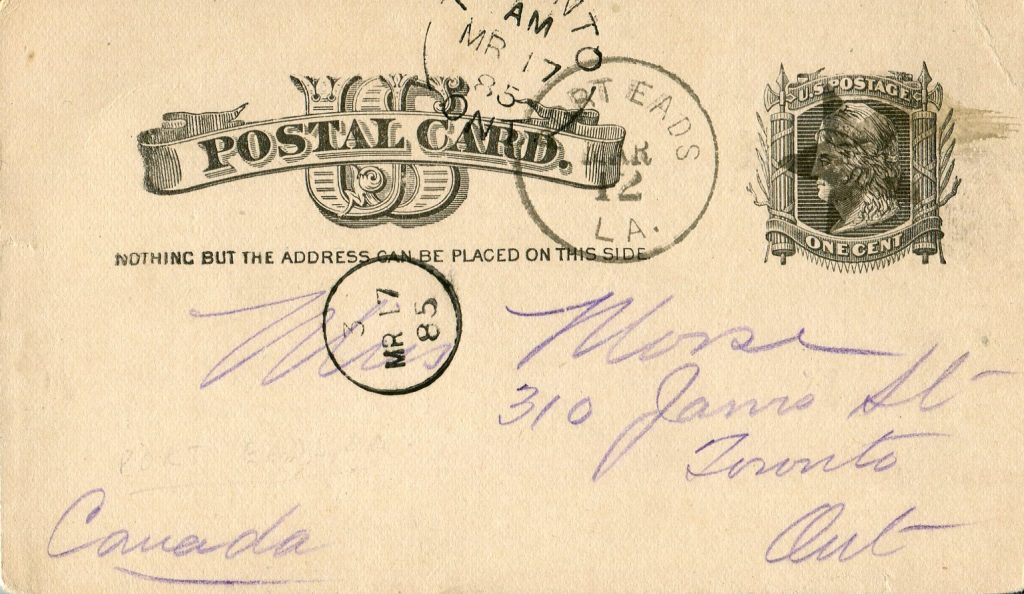 TORONTO
AM
MR 17
85
ONT.
U.S. POSTAGE
US
POSTAL CARD.
PT EADS
MAR
12
LA.
ONE CENT
NOTHING BUT THE ADDRESS CAN BE PLACED ON THIS SIDE
3
MR 17
85
Miss Morse
310 Jarvis St
Toronto
Canada
Ont